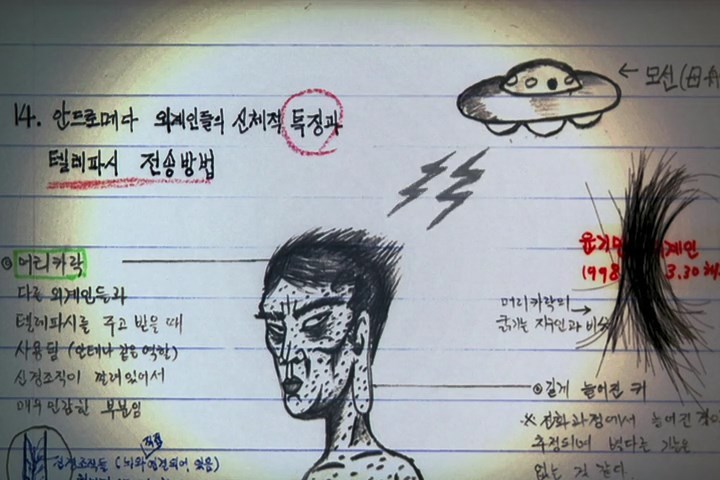 ← 모선(母舟
14. 안드로메다 외계인들의 신체적 특징과
텔레파시 전송방법
◎ 머리카락
다른 외계인들과
텔레파시를 주고 받을 때
사용됨 (안테나 같은 역할)
신경조직이 깔려있어서
매우 민감한 부분임
외계인
1998 3.30
머리카락의 →
굵기는 지구인과 비슷
◎ 길게 늘어진 귀
※ 진화과정에서 늘어진 것이
추정되며 별다른 기능은
없는 것 같다.
신경조직들 (뇌와 연결되어 있음)